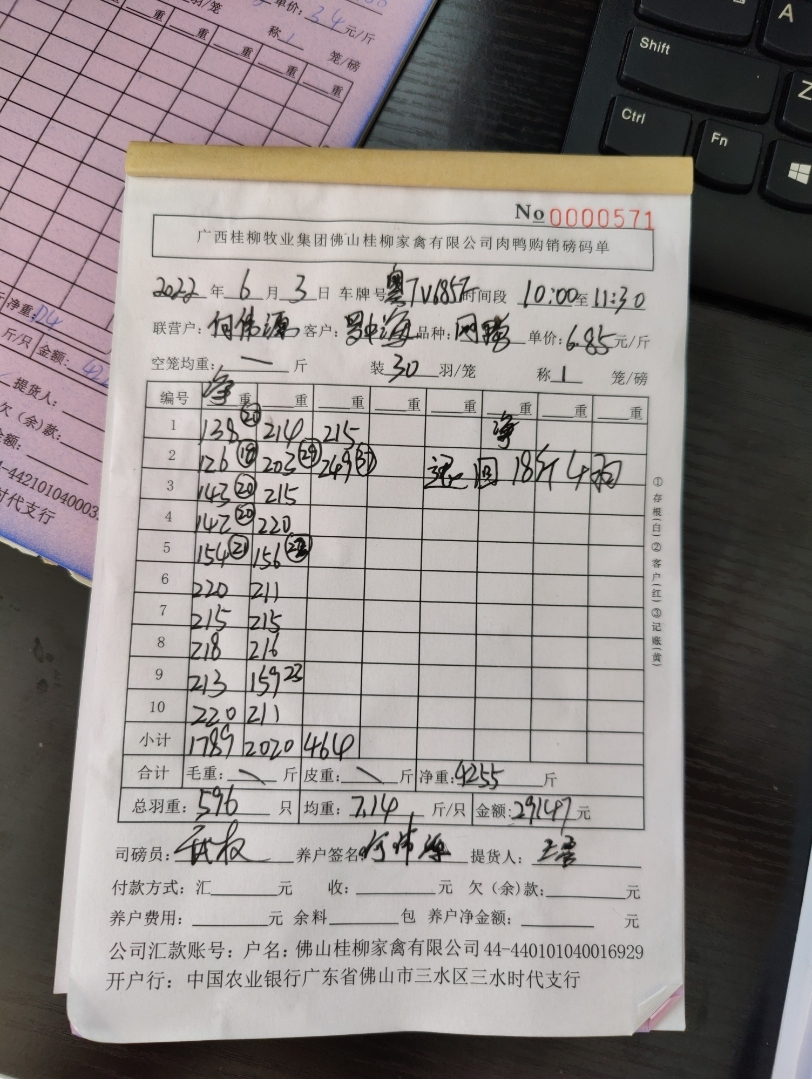 单价：34元/斤
称1 笼/磅
重 重 重 重
净重：
斤/只 金额：
提货人：
欠（余）款：
金额：
44-442101040003
时代支行
Shift
Ctrl
Fn
A
Z
No 0000571
广西桂柳牧业集团佛山桂柳家禽有限公司肉鸭购销磅码单
2022年6月3日 车牌号 粤 时间段 10:00至11:30
联营户：何伟源 客户： 海 品种： 单价：6.85元/斤
空笼均重：一斤 装30羽/笼 称1笼/磅
编号 净重 重 重 重 重 重 重 重
1 138 20 214 215 净
2 126 18 203 29 249 37 返回 18斤4羽
3 143 20 215
4 142 20 220
5 154 21 156
6 220 211
7 215 215
8 218 216
9 213 159 23
10 220 211
小计 1789 2020 464
合计 毛重： 斤 皮重： 斤 净重：4255斤
总羽重：596只 均重：7.14斤/只 金额：29147元
司磅员： 养户签名 何伟源 提货人：
付款方式：汇 元 收： 元 欠（余）款： 元
养户费用： 元 余料 包 养户净金额： 元
公司汇款账号：户名：佛山桂柳家禽有限公司 44-440101040016929
开户行：中国农业银行广东省佛山市三水区三水时代支行
①存根(白)②客户(红)③记账(黄)